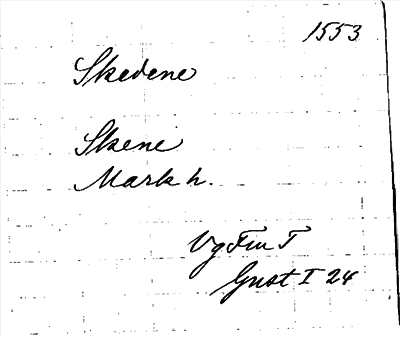 1553
Skedene
Skene
Mark h.
Vg Fru T
Gust I 24